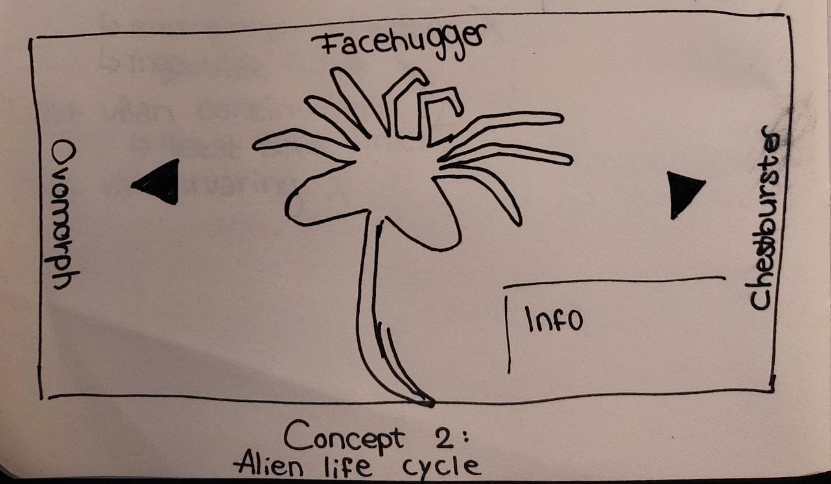 Facehugger
Ovomorph
Chestburster
Info
Concept 2:
Alien life cycle